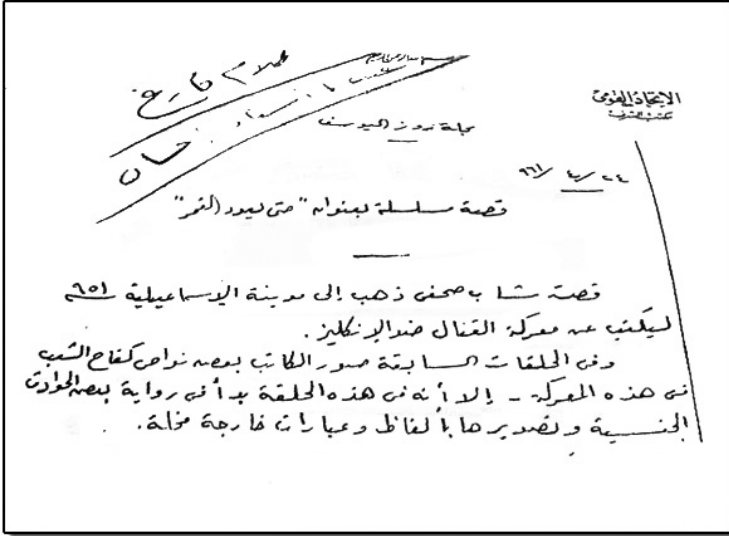 كلام فارغ
الاتحاد القومى
مجلة روز اليوسف
٢٤/٤/٩٦١
قصة مسلسلة بعنوان "حتى يعود القمر"
قصة شاب صحفى ذهب إلى مدينة الاسماعيلية ٩٥١
ليكتب عن معركة القنال ضد الإنكليز .
وفى الحلقات السابقة صور الكاتب بعض نواحى كفاح الشعب
فى هذه المعركة - إلا أنه فى هذه الحلقة بدأ فى رواية بعض الحوادث
الجنسية وتصويرها بألفاظ وعبارات خارجة مخلة .